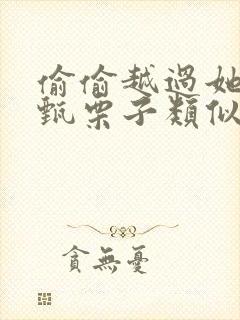 偷偷越過她
甄栗子類似
貪無憂